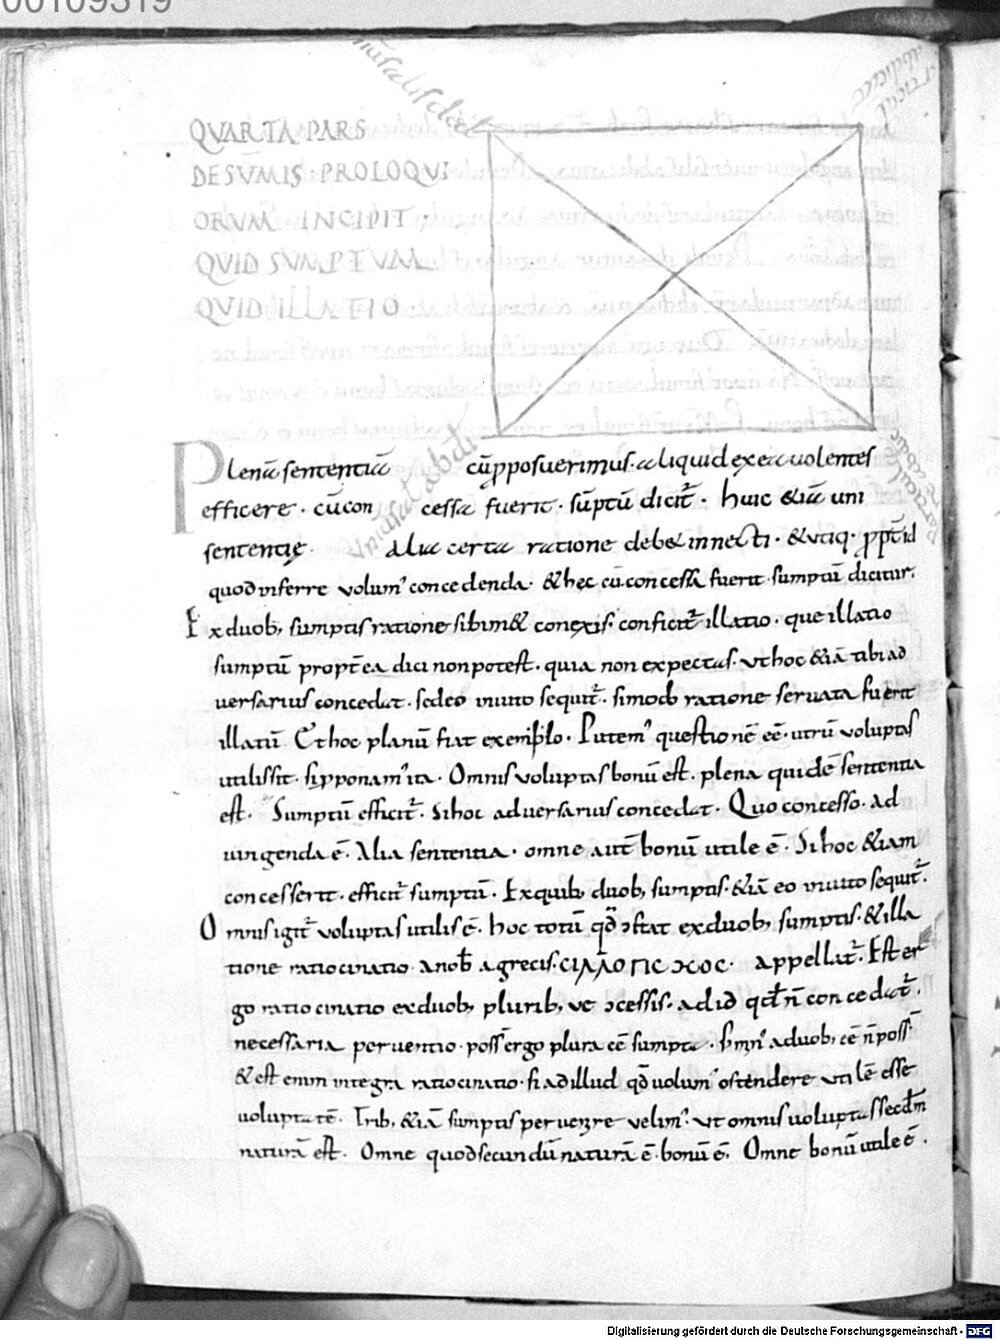 00109319
QVARTA PARS
DE SVMIS · PROLOQVI
ORVM INCIPIT ·
QVID SVMPTVM
QVID ILLATIO ·
Plenā sententiā cū pposuerimus · aliquid ex ea uolentes
efficere · cū con cessa fuerit · sūptū dicit᷒ · huic &iā uni
sententię · Alia certa ratione deb& innecti · &utiq ·
quod inferre volum᾽ concedenda · &hęc cū concessa fuerit · sumptū dicitur.
Ex duob; sumptis ratione sibim& conexis · conficit᷒ illatio · que illatio
sumptū propt̄ea dici non potest · quia non expectas · vt hoc &iā tibi ad
versarius concedat · sed eo inuito sequit᷒ · si modo ratione servata fuerit
illatū · Et hoc planū fiat exemplo · Putem᾽ questionē eē · utrū voluptas
utilis sit · supponam᾽ ita · Omnis voluptas bonū est · plena quidē sententia
est · Sumptū efficit᷒ · Si hoc adversarius concedat · Quo concesso · ad
iungenda ē · Alia sententia · omne aut̄ bonū utile ē · Si hoc &iam
concesserit · efficit᷒ sumptū · Ex quib; duob; sumptis · &iā eo inuito sequit᷒ ·
Omnis igit᷒ voluptas utilis ē · hoc totū qđ ɔstat ex duob; sumptis · & illa
tione ratiocinatio · a nob̄ · a grecis · CIΛΛΟΓΙCΜΟC · appellat᷒ · Est er
go ratiocinatio ex duob; plurib; vt ɔcessis · ad id qđ n̄ concedat᷒ ·
necessaria perventio · poss̄ ergo plura eē sumpta · a duob; eē n̄ poss̄ ·
& est enim integra ratiocinatio · si ad illud qđ volum᾽ ostendere utilē esse
voluptatē · Trib; &iā sumptis pervenire velim᾽ · vt omnis uoluptas secdm̄
naturā est · Omne quod secundū naturā ē · bonū ē · Omne bonū utile ē ·
Digitalisierung gefördert durch die Deutsche Forschungsgemeinschaft - DFG